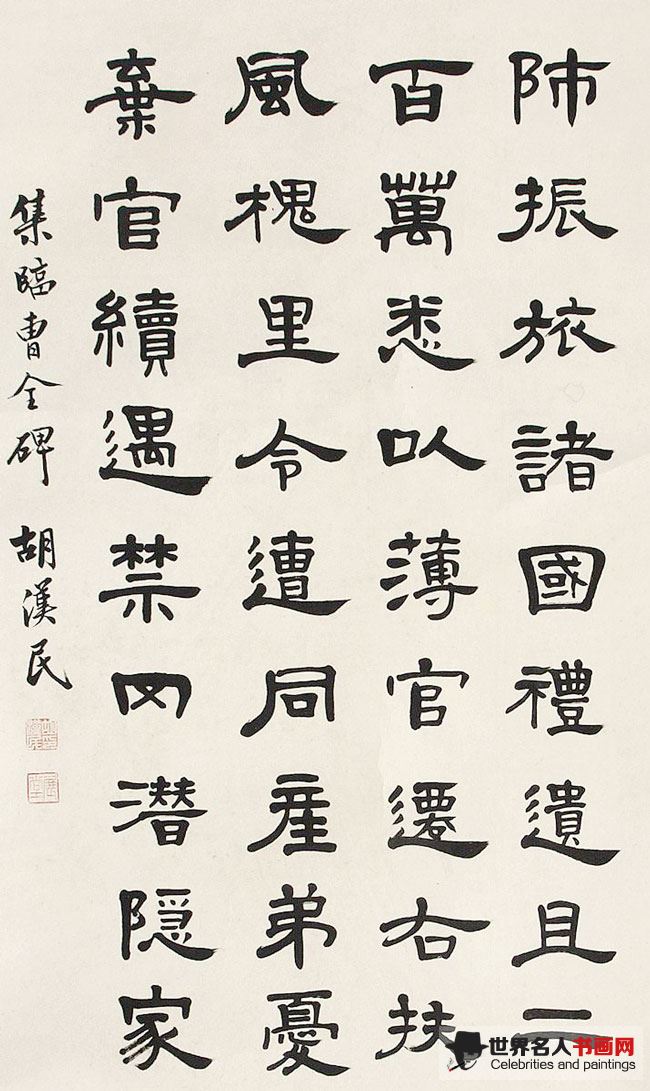 師振旅諸國禮遺且二
百萬悉以薄官遷右扶
風槐里令遭同產弟憂
棄官續遇禁网潛隱家
集臨曹全碑 胡漢民
世界名人书画网
Celebrities and paintings